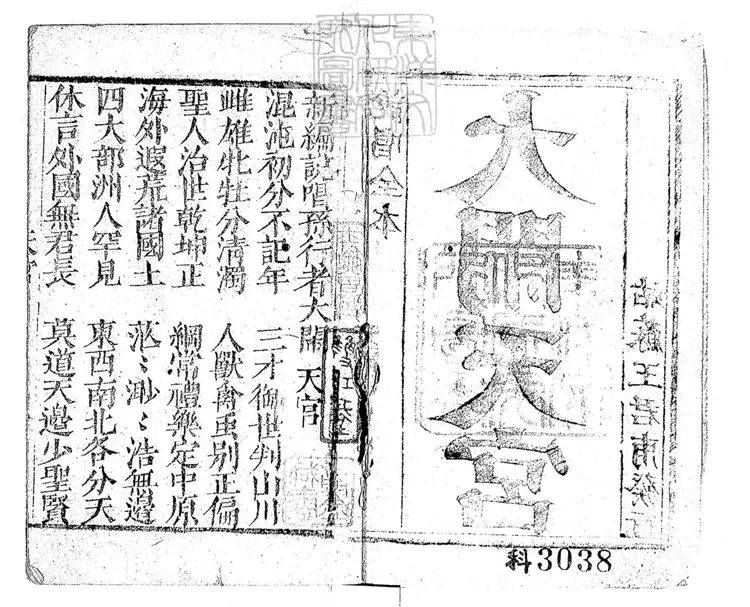 姑蘇王君甫發行
大鬧天宮
新編說唱全本
新編說唱孫行者大鬧天宮
混沌初分不記年　三才御世判山川
雌雄牝牡分清濁　人獸禽虫別正偏
聖人治世乾坤正　綱常禮樂定中原
海外遐荒諸國土　茫〻渺〻浩無邊
四大部洲人罕見　東西南北各分天
休言外國無君長　莫道天邊少聖賢
科3038